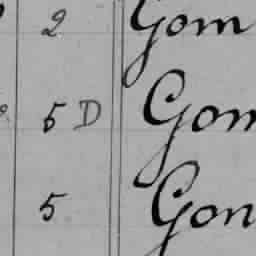 2 Gom
5 D Gom
5 Gon